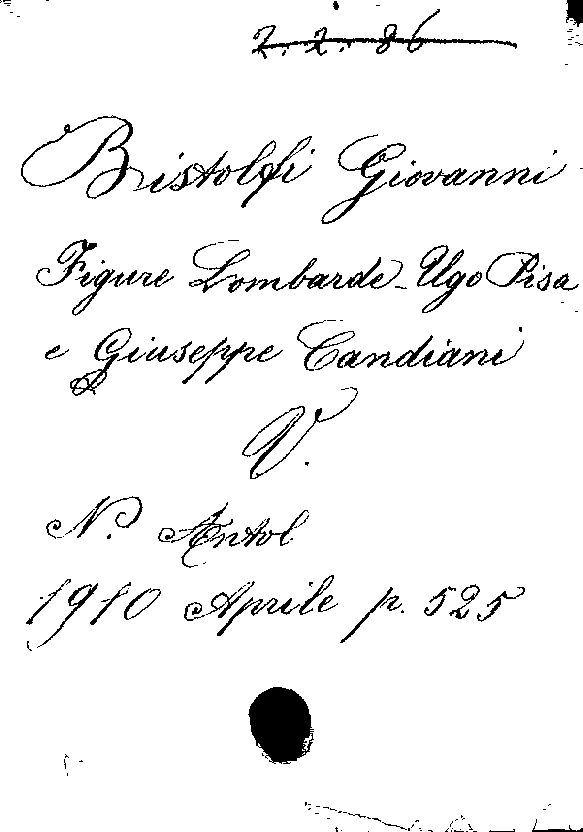 2. 2. 86
Bistolfi Giovanni
Figure Lombarde - Ugo Pisa
e Giuseppe Candiani
V.
N. Antol
1910 Aprile p. 525